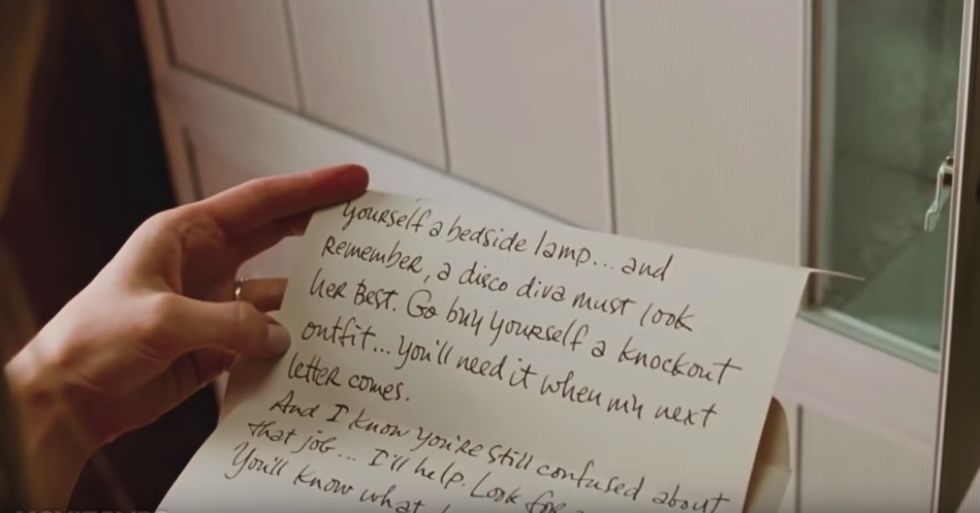 yourself a bedside lamp... and
Remember, a disco diva must look
her Best. Go buy yourself a knockout
outfit... you'll need it when my next
letter comes.
And I know you're still confused about
that job... I'll help. Look for
You'll know what